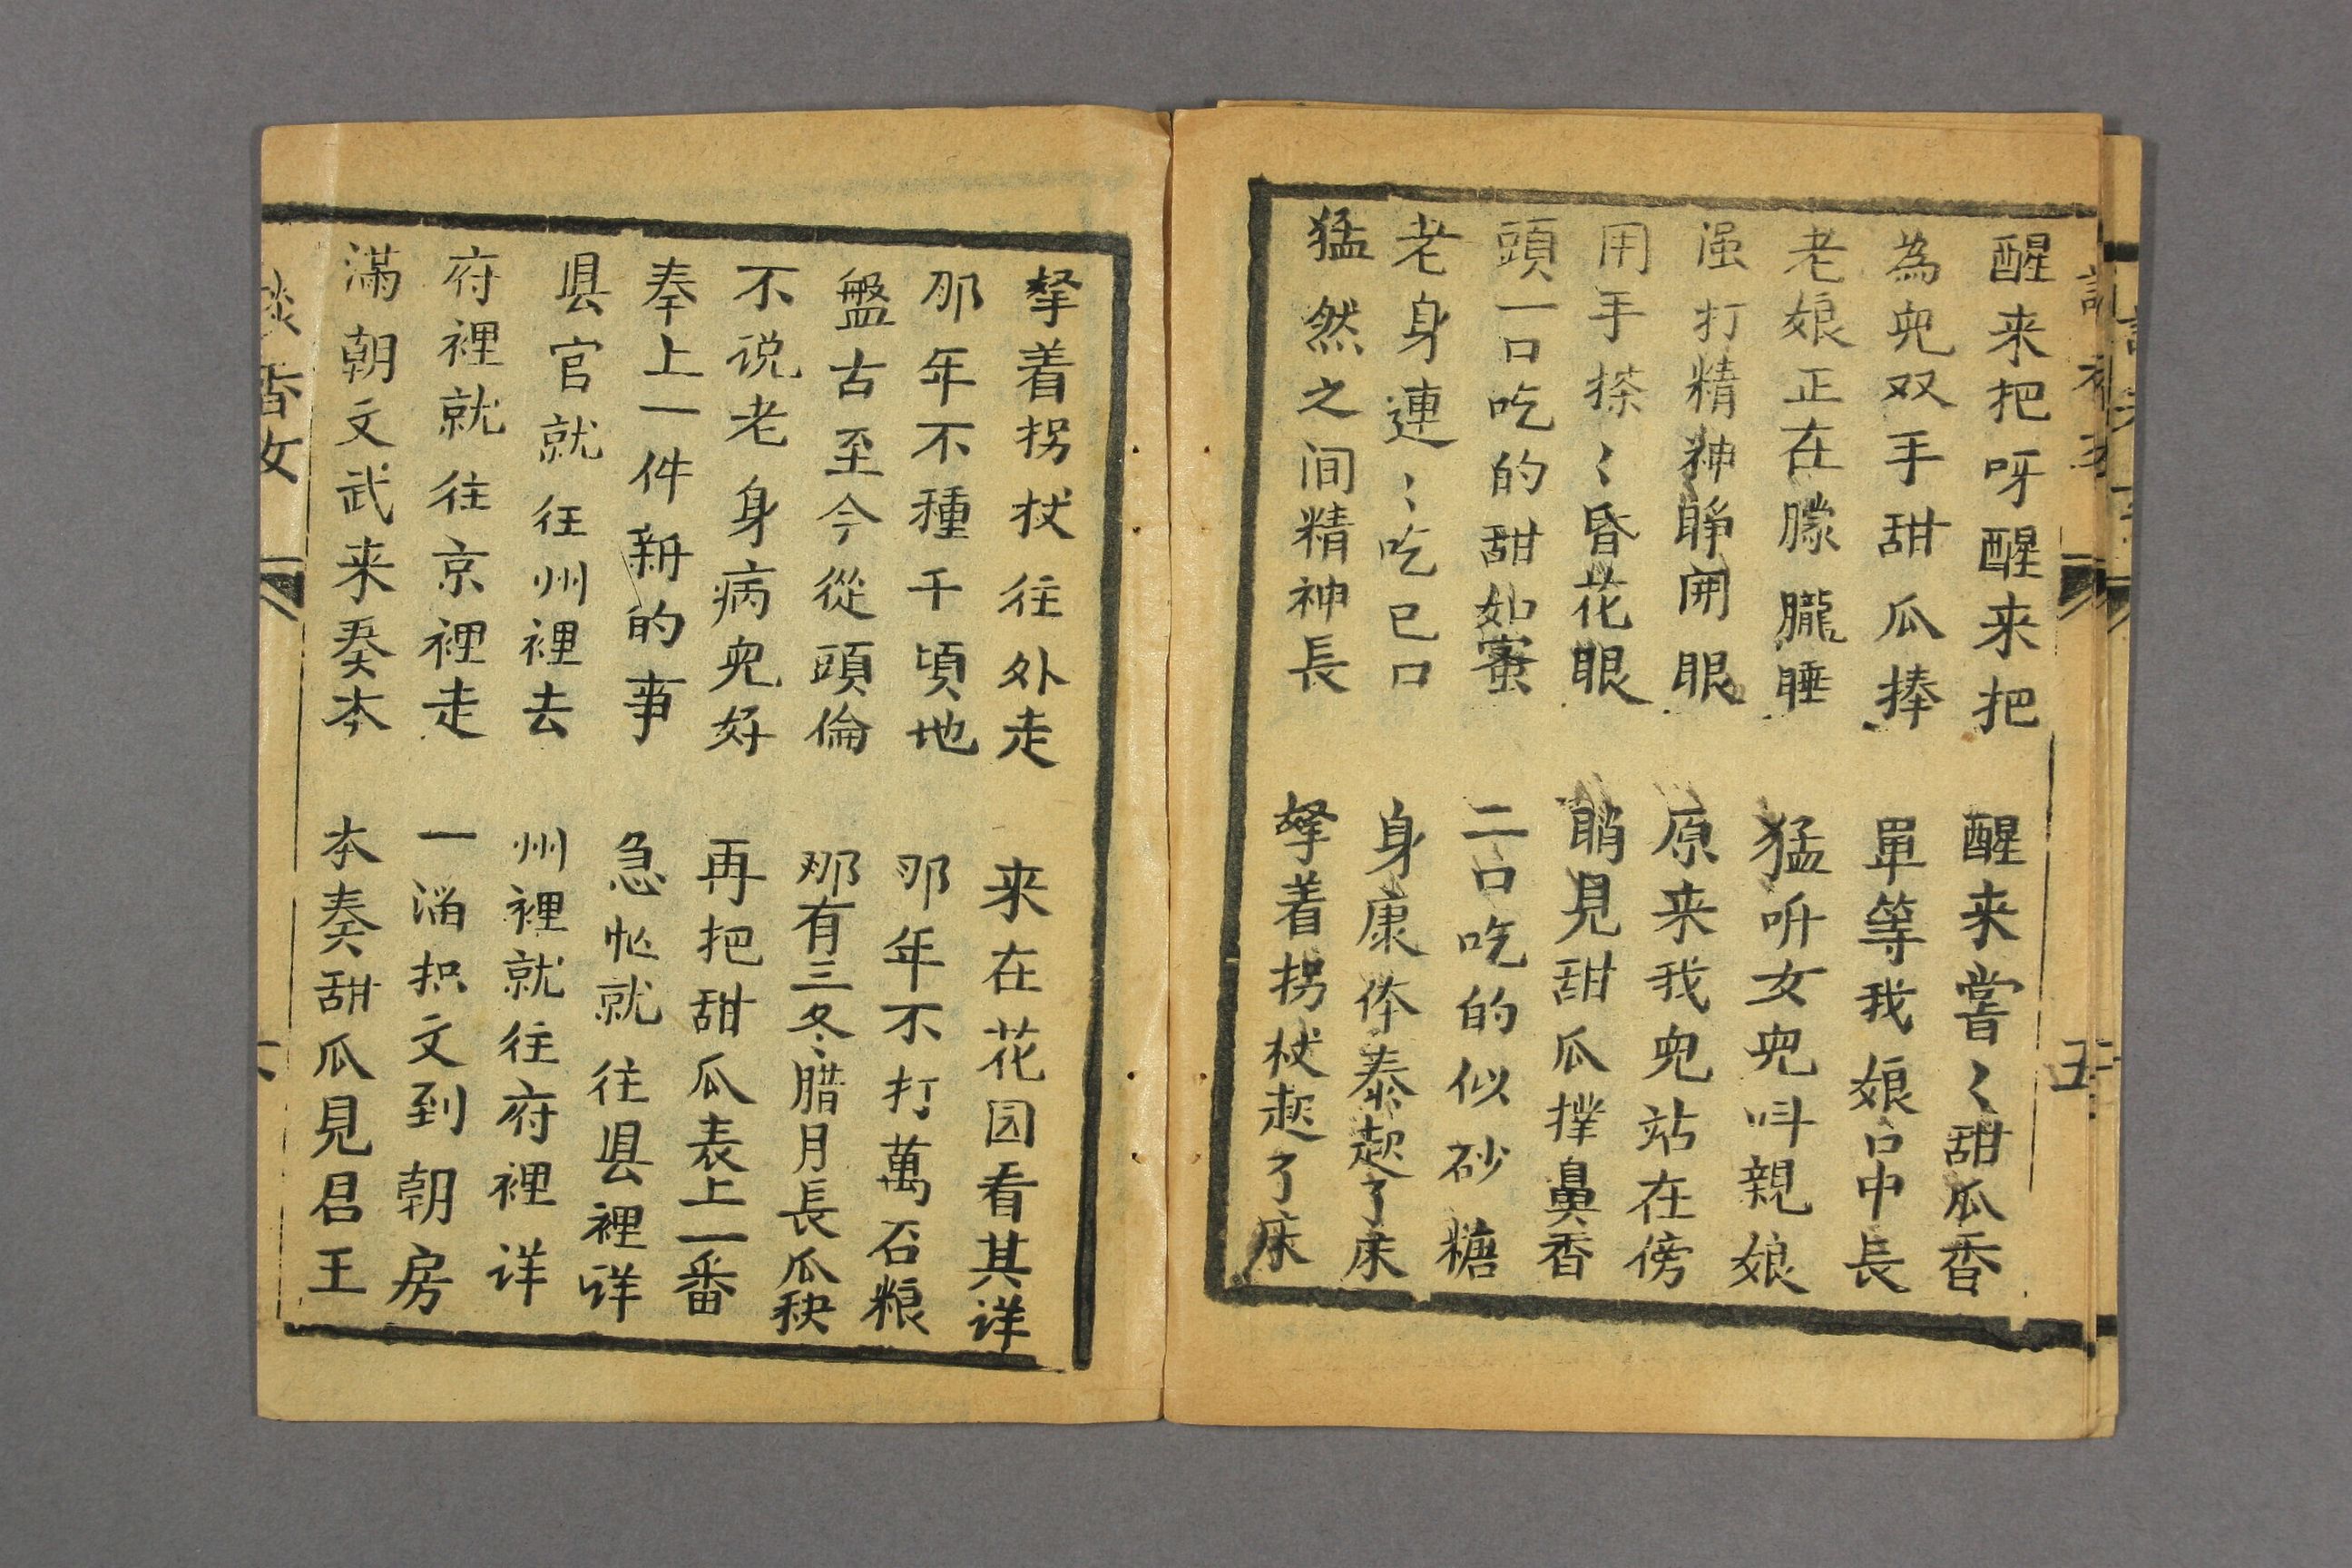 醒来把呀醒来把 醒来嘗〻甜瓜香
為兜双手甜瓜捧 单等我娘口中長
老娘正在朦朧睡 猛听女兜呌親娘
强打精神睁開眼 原来我兜站在傍
用手搽〻昏花眼 睄見甜瓜撲鼻香
頭一口吃的甜如蜜 二口吃的似砂糖
老身連〻吃已口 身康体泰起了床
猛然之间精神長 拏着拐杖起了床
拏着拐杖往外走 来在花园看其详
那年不種千頃地 那年不打萬石粮
盤古至今從頭倫 那有三冬腊月長瓜秧
不说老身病兜好 再把甜瓜表上一番
奉上一件新的事 急忙就往县裡详
县官就往州裡去 州裡就往府裡详
府裡就往京裡走 一淌报文到朝房
滿朝文武来奏本 本奏甜瓜見君王
香女
五